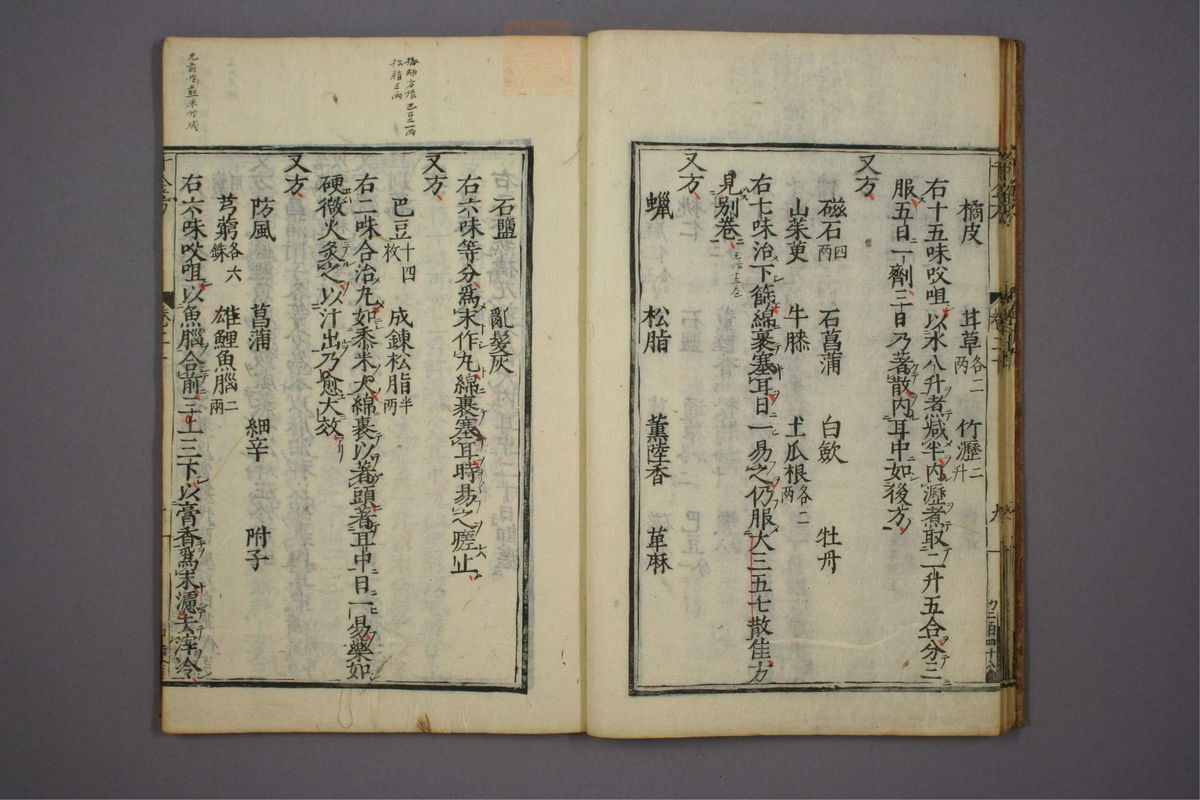 橘皮 茸草各二兩 竹瀝二升
右十五味㕮咀以水八升煮减半内瀝煮取二升五合分三
服五日一劑三日乃著散内耳中如後方
又方
磁石四兩 石菖蒲 白歛 牡丹
山茱萸 牛膝 土瓜根各二兩
右七味治下篩綿裹塞耳日一易之仍服大三五七散佳方
見別卷
又方
蠟 松脂 薰陸香 萆麻
石鹽 亂髮灰
右六味等分爲末作丸綿裹塞耳時易之瘥止
又方
巴豆十四枚 成鍊松脂半兩
右二味合治丸如黍米大綿裹以著頭著耳中日一易藥如
硬微火灸之以汁出乃愈大效
又方
防風 菖蒲 細辛 附子
芎藭各六銖 雄鯉魚腦二兩
右六味㕮咀以魚腦合煎三上三下以膏香爲末濾去滓冷